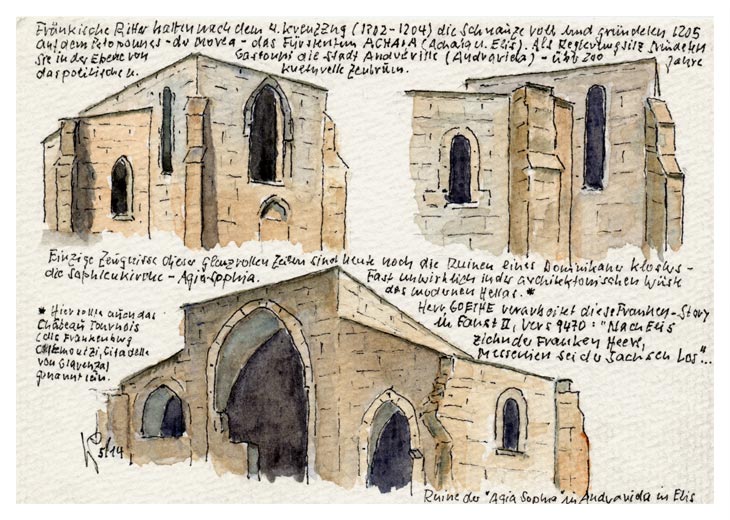 Fränkische Ritter hatten nach dem 4. Kreuzzug (1202-1204) die Schnauze voll und gründeten 1205
auf dem Peloponnes - der Morea - das Fürstentum ACHAIA (Achaia u. Elis). Als Regierungssitz gründeten
sie in der Ebene von Gastouni die Stadt Andréville (Andravida) - üb. 200 Jahre
das politische u. kulturelle Zentrum.
Einzige Zeugnisse dieser glanzvollen Zeiten sind heute noch die Ruinen eines Dominikaner klosters -
die Sophienkirche - Agia Sophia. Fast unwirklich in der architektonischen Wüste
des modernen Hellas. *
* Hier sollte auch das
Château Tournois
(die Frankenburg
Chlemoutzi, Citadelle
von Glarenza)
genannt sein.
Herr GOETHE verarbeitet diese Franken-Story
in Faust II, Vers 9470: "Nach Elis
zieh der Franken Heer,
Messenien sei der Sachsen Los"...
5/14
Ruine der "Agia Sophia" in Andravida in Elis